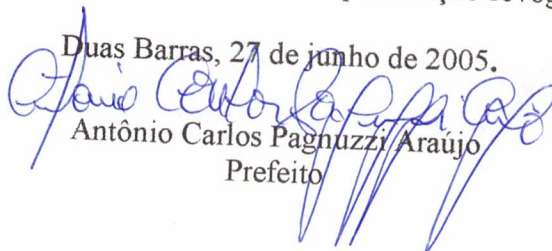 Duas Barras, 27 de junho de 2005.
Antônio Carlos Pagnuzzi Araújo
Prefeito